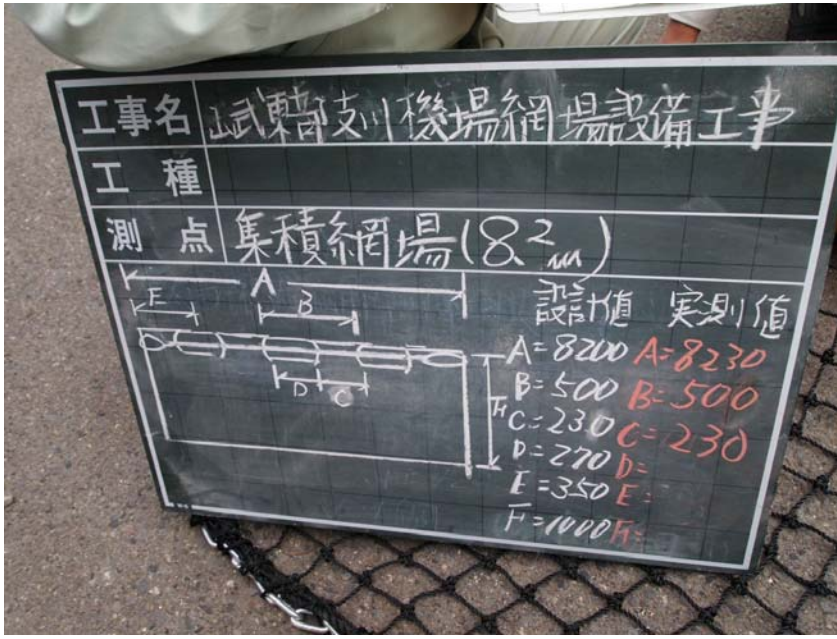 工事名 山武東部支川機場網場設備工事
工種
測点 集積網場(8.2m)
A
E B
D C
F
設計値 実測値
A=8200 A=8230
B=500 B=500
C=230 C=230
D=270 D=
E=350 E=
F=1000 F=